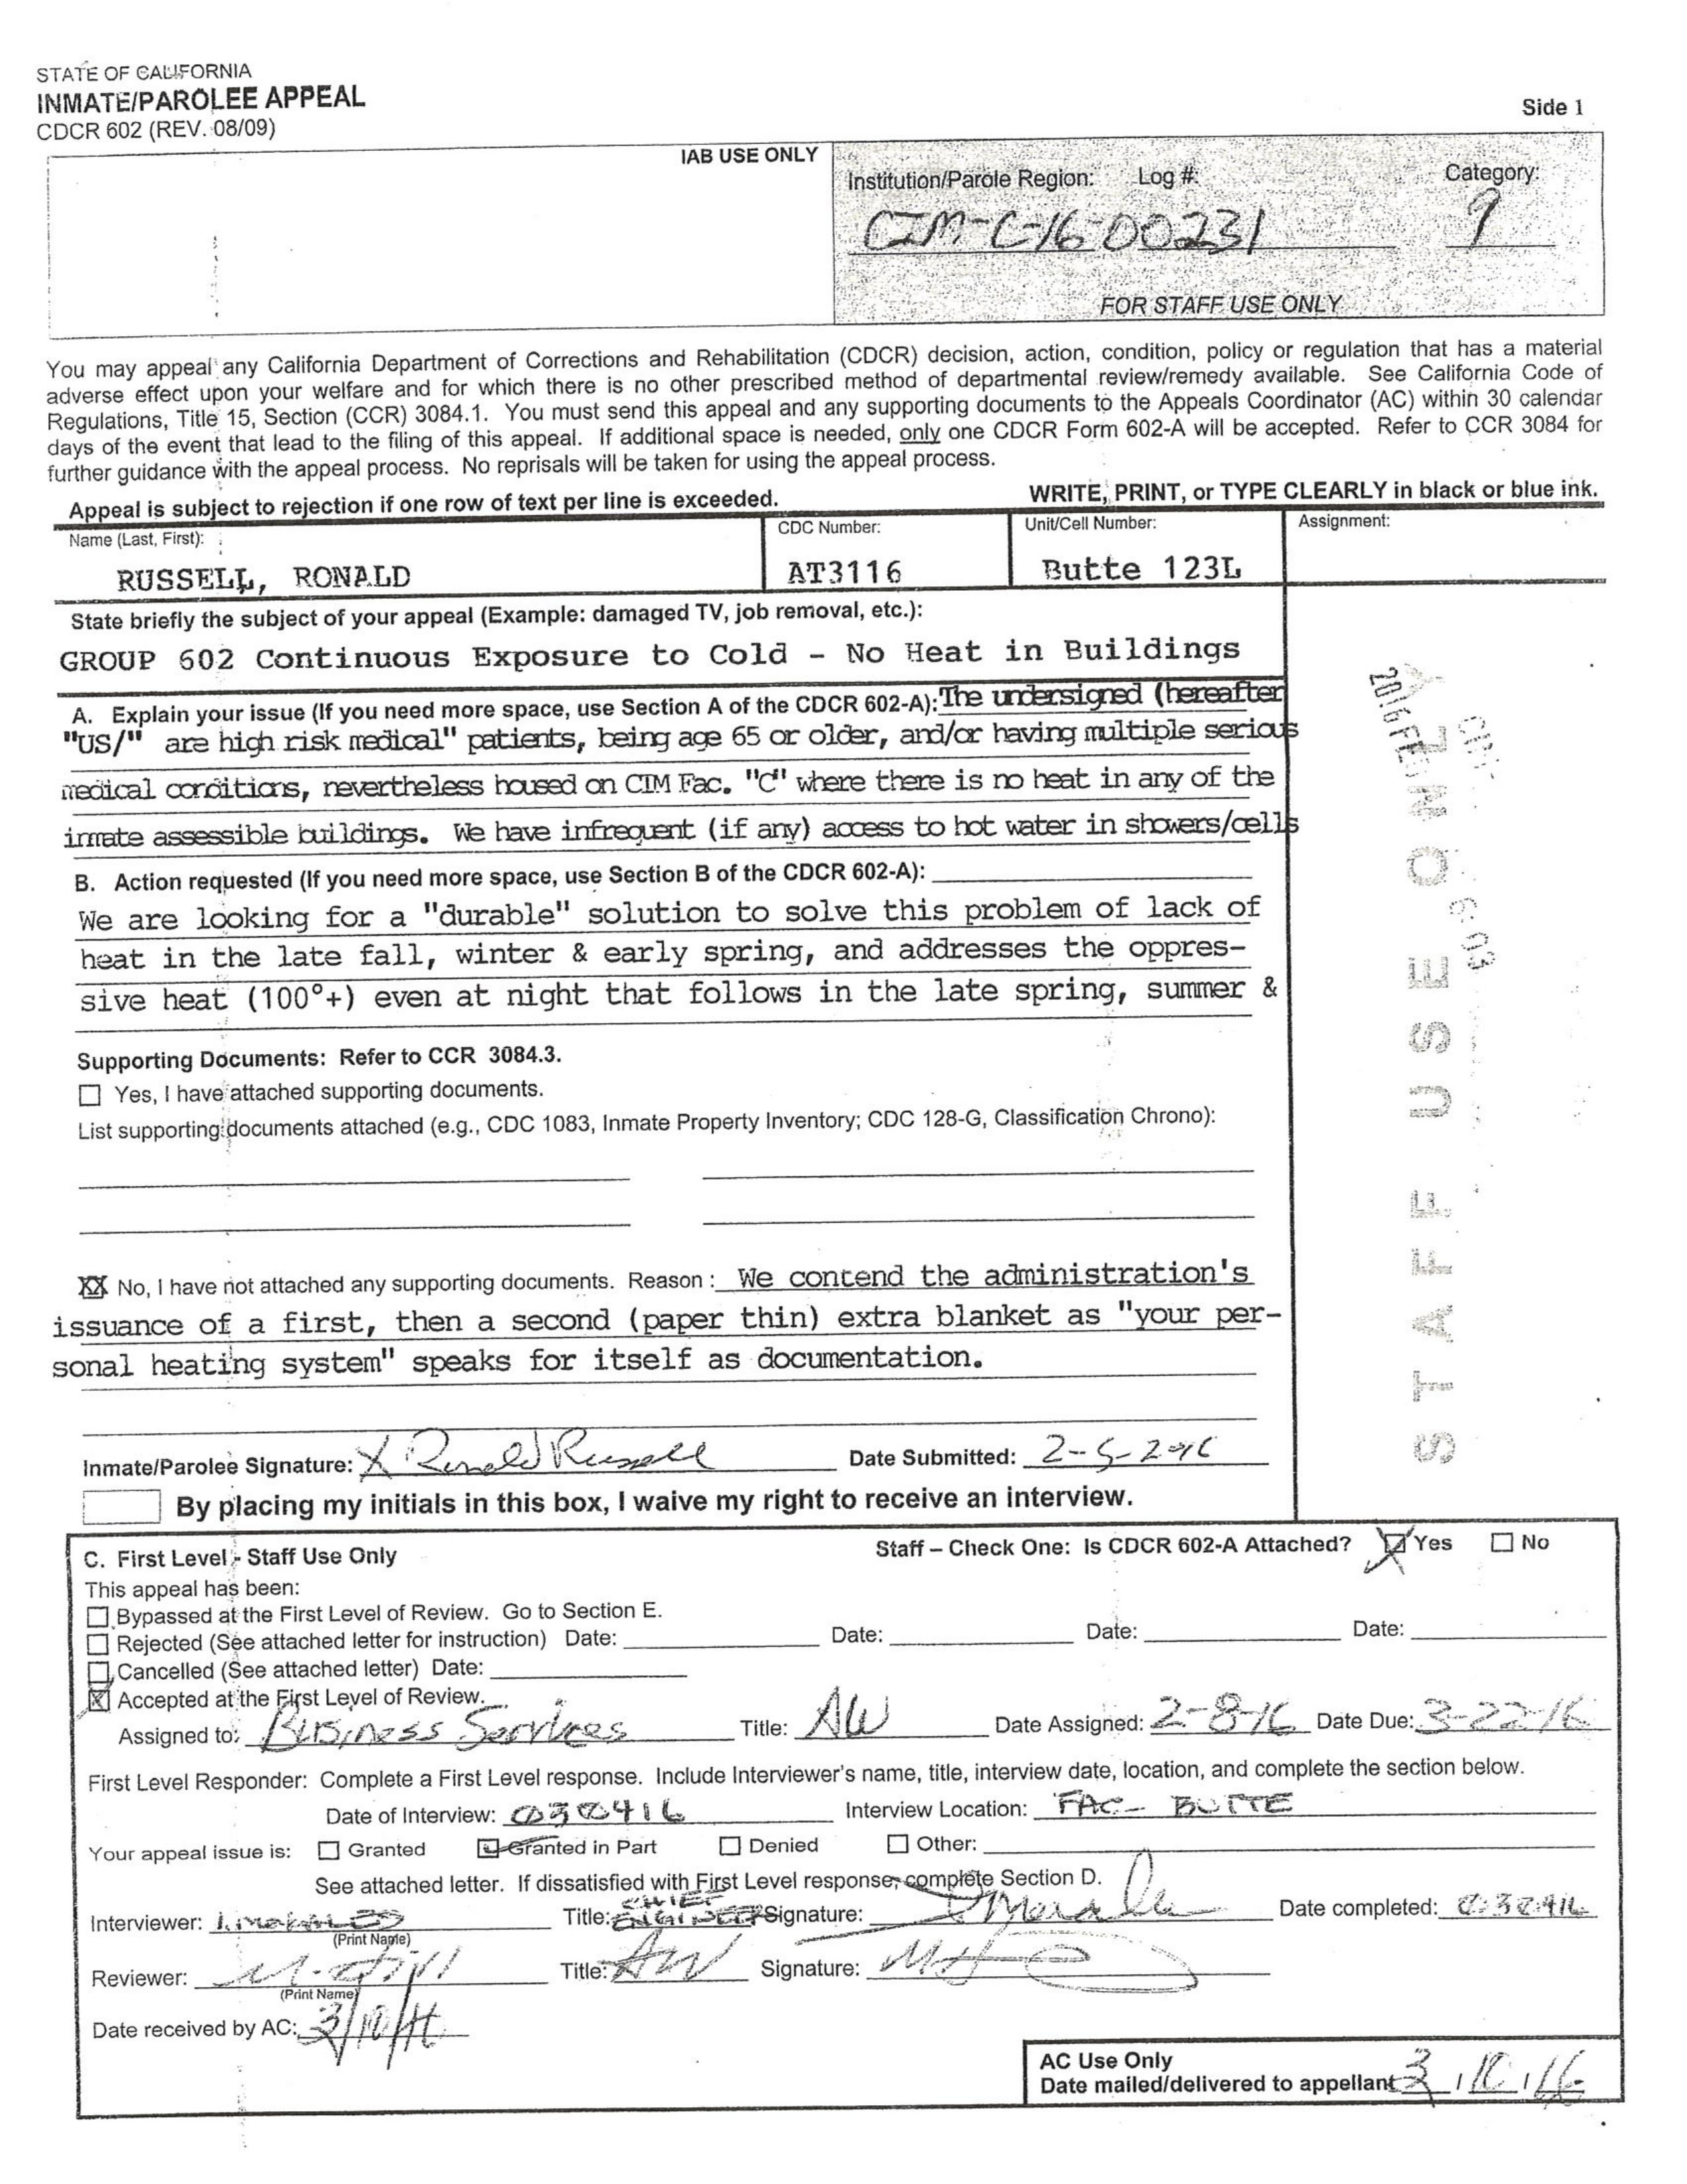 STATE OF CALIFORNIA
INMATE/PAROLEE APPEAL
CDCR 602 (REV. 08/09)
Side 1
IAB USE ONLY
Institution/Parole Region: Log #: Category:
CIM-C-16-00231 9
FOR STAFF USE ONLY
You may appeal any California Department of Corrections and Rehabilitation (CDCR) decision, action, condition, policy or regulation that has a material
adverse effect upon your welfare and for which there is no other prescribed method of departmental review/remedy available. See California Code of
Regulations, Title 15, Section (CCR) 3084.1. You must send this appeal and any supporting documents to the Appeals Coordinator (AC) within 30 calendar
days of the event that lead to the filing of this appeal. If additional space is needed, only one CDCR Form 602-A will be accepted. Refer to CCR 3084 for
further guidance with the appeal process. No reprisals will be taken for using the appeal process.
Appeal is subject to rejection if one row of text per line is exceeded. WRITE, PRINT, or TYPE CLEARLY in black or blue ink.
Name (Last, First): CDC Number: Unit/Cell Number: Assignment:
RUSSELL, RONALD AT3116 Butte 123L
State briefly the subject of your appeal (Example: damaged TV, job removal, etc.):
GROUP 602 Continuous Exposure to Cold - No Heat in Buildings
A. Explain your issue (If you need more space, use Section A of the CDCR 602-A): The undersigned (hereafter
"US/" are high risk medical" patients, being age 65 or older, and/or having multiple serious
medical conditions, nevertheless housed on CIM Fac. "C" where there is no heat in any of the
inmate assessible buildings. We have infrequent (if any) access to hot water in showers/cells
B. Action requested (If you need more space, use Section B of the CDCR 602-A):
We are looking for a "durable" solution to solve this problem of lack of
heat in the late fall, winter & early spring, and addresses the oppres-
sive heat (100°+) even at night that follows in the late spring, summer &
Supporting Documents: Refer to CCR 3084.3.
Yes, I have attached supporting documents.
List supporting documents attached (e.g., CDC 1083, Inmate Property Inventory; CDC 128-G, Classification Chrono):
XX No, I have not attached any supporting documents. Reason : We contend the administration's
issuance of a first, then a second (paper thin) extra blanket as "your per-
sonal heating system" speaks for itself as documentation.
Inmate/Parolee Signature: X Ronald Russell Date Submitted: 2-5-2016
By placing my initials in this box, I waive my right to receive an interview.
STAFF USE ONLY
C. First Level - Staff Use Only Staff – Check One: Is CDCR 602-A Attached? Yes No
This appeal has been:
Bypassed at the First Level of Review. Go to Section E.
Rejected (See attached letter for instruction) Date: Date: Date: Date:
Cancelled (See attached letter) Date:
Accepted at the First Level of Review.
Assigned to: Business Services Title: AW Date Assigned: 2-8-16 Date Due: 3-22-16
First Level Responder: Complete a First Level response. Include Interviewer's name, title, interview date, location, and complete the section below.
Date of Interview: 030416 Interview Location: FAC- BUTTE
Your appeal issue is: Granted Granted in Part Denied Other:
See attached letter. If dissatisfied with First Level response, complete Section D.
Interviewer: Title: CHIEF ENGINEER Signature: Date completed: 030416
(Print Name)
Reviewer: Title: AW Signature:
(Print Name)
Date received by AC: 3/10/16
AC Use Only
Date mailed/delivered to appellant 3 / 10 / 16